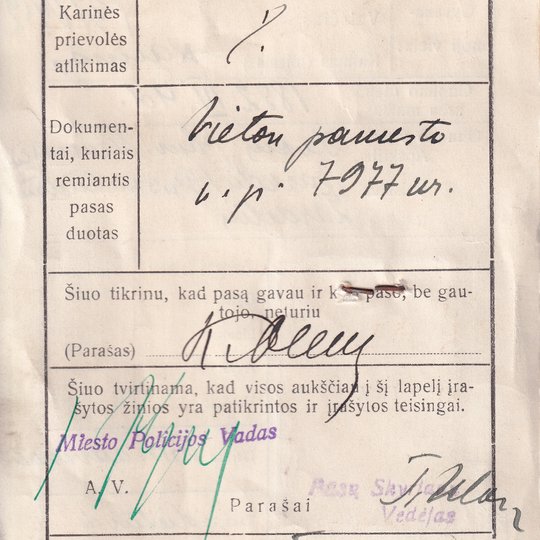 Karinės
prievolės
atlikimas
?.
Dokumen-
tai, kuriais
remiantis
pasas
duotas
Vieton pamesto
v. p. 7977 nr.
Šiuo tikrinu, kad pasą gavau ir k paso, be gau-
tojo, neturiu
(Parašas)
Šiuo tvirtinama, kad visos aukščiau į šį lapelį įra-
šytos žinios yra patikrintos ir įrašytos teisingai.
Miesto Policijos Vadas
A. V.
Parašai
Pasų Skyriaus
Vedėjas